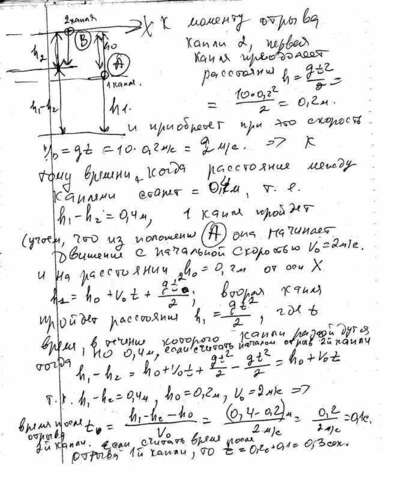 2 капля X К моменту отрыва
B капли 2, первая
h₂ h₀ A капля преодолеет
1 капля. расстояние h = gt²/2 =
h₁-h₂ h1. = 10·0,2²/2 = 0,2м.
и приобретет при это скорость
V₀ = gt = 10·0,2м/с = 2м/с. => К
тому времени, когда расстояние между
каплями станет = 0,4м, т. е.
h₁-h₂ = 0,4м, 1 капля пройдет
(учтем, что из положения A она начинает
движение с начальной скоростью V₀ = 2м/с.
и на расстоянии h₀ = 0,2м от оси X
= h₀ + V₀t + gt²/2, вторая капля
пройдет расстояние h₁ = gt²/2, где t
время, в течении которого капли разойдутся
на 0,4м, если считать началом отрыв 2й капли
тогда h₁-h₂ = h₀+V₀t+gt²/2 - gt²/2 = h₀+V₀t
т. к. h₁-h₂ = 0,4м, h₀ = 0,2м, V₀ = 2м/с =>
время после отрыва 2й капли. t = h₁-h₂-h₀/V₀ = (0,4-0,2)м/2м/с = 0,2/2м/с = 0,1с.
если считать время после
отрыва 1й капли, то t = 0,2+0,1 = 0,3сек.